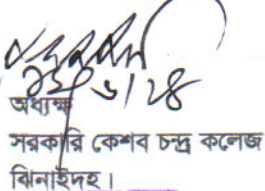 অধ্যক্ষ
সরকারি কেশব চন্দ্র কলেজ
ঝিনাইদহ।